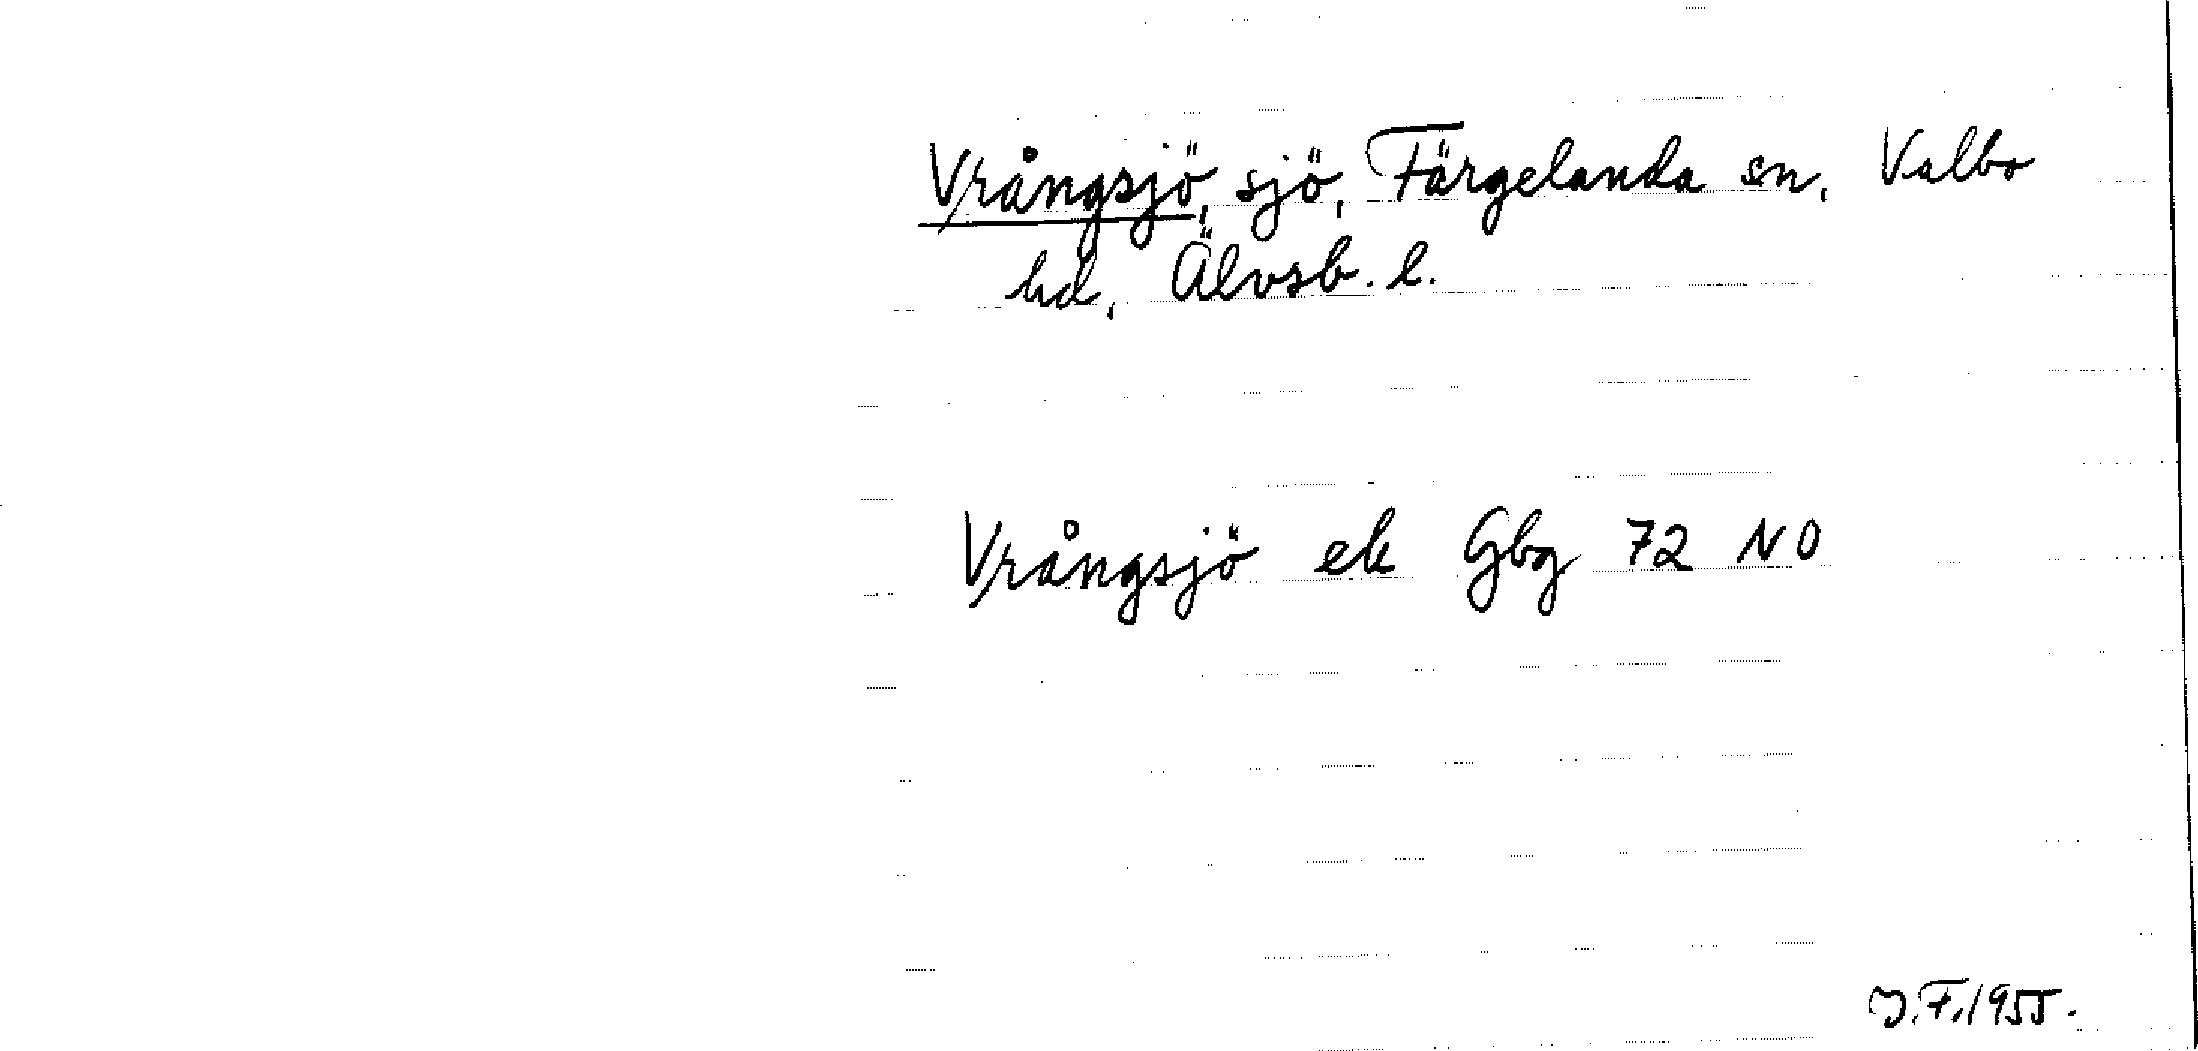 Vrångsjö, sjö, Färgelanda sn, Valbo
hd, Älvsb. l.
Vrångsjö ek Gbg 72 NO
J.F. 1955.